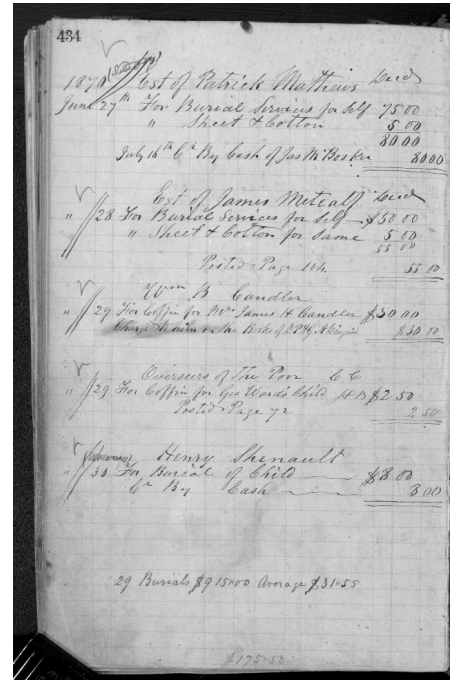 434
1870 Est of Patrick Mathews Decd
June 27th For Burial Services for Self 75 00
" Sheet & Cotton 5 00
80 00
July 16th Cr By Cash of Jas McBosker 80 00
Est of James Metcalf Decd
" 28 For Burial Services for Self $50 00
" Sheet & Cotton for Same 5 00
55 00
Posted Page 104 55 00
Wm B Candler
" 29 For Coffin for Mrs James H Candler $30 00
Charge to him on the Books of $30.00
Overseers of The Poor C C
" 29 For Coffin for Geo Words Child H B $2 50
Posted Page 72 2 50
Henry Shenault
" 30 For Burial of Child $8 00
Cr By Cash 8 00
29 Burials $915=00 Average $31=55
$175=50